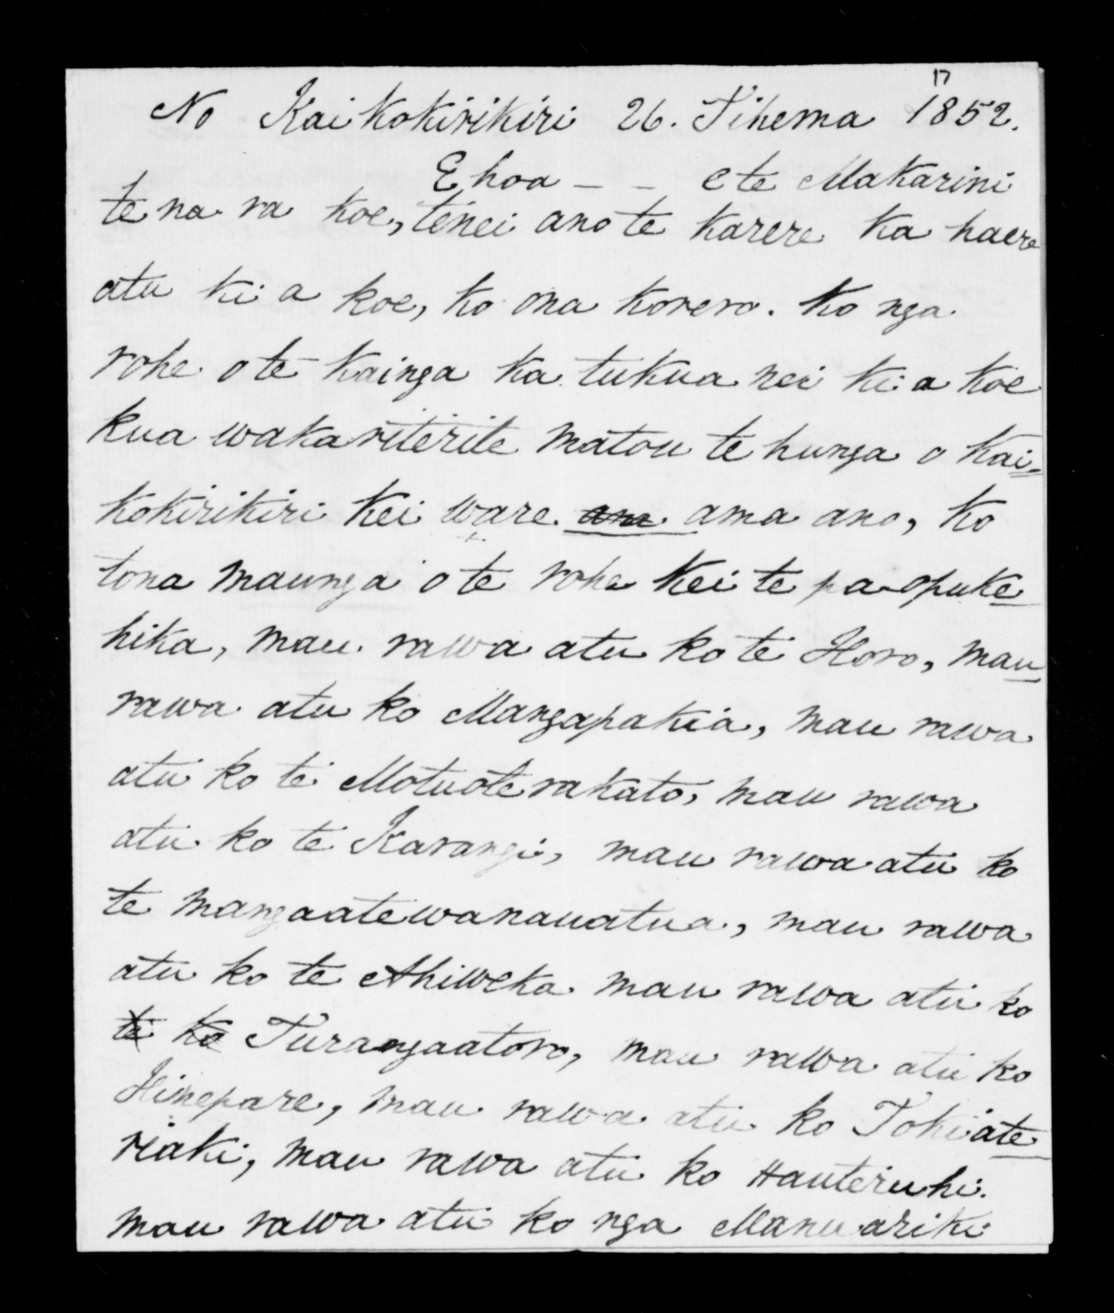 17
No Kaikokirikiri 26. Tihema 1852.
E hoa – – e te Makarini
te na ra koe, tenei ano te karere ka haere
atu ki a koe, ko ona korero. Ko nga
rohe o te kainga ka tukua nei ki a koe
kua wakaritirite matou te hunga o Kai-
kokirikiri kei ware ama ano, ko
tona maunga o te rohe kei te pa o puke
hika, mau rawa atu ko te Horo, mau
rawa atu ko Mangapakia, mau rawa
atu ko te Motuoterakato, mau rawa
atu ko te Karangi, mau rawa atu ko
te mangaatewanauatua, mau rawa
atu ko te Ahiweka mau rawa atu ko
te ko Turangaatoro, mau rawa atu ko
Hinepare, mau rawa atu ko Tokiate
riaki, mau rawa atu ko Hauteruhi.
mau rawa atu ko nga Manuariki